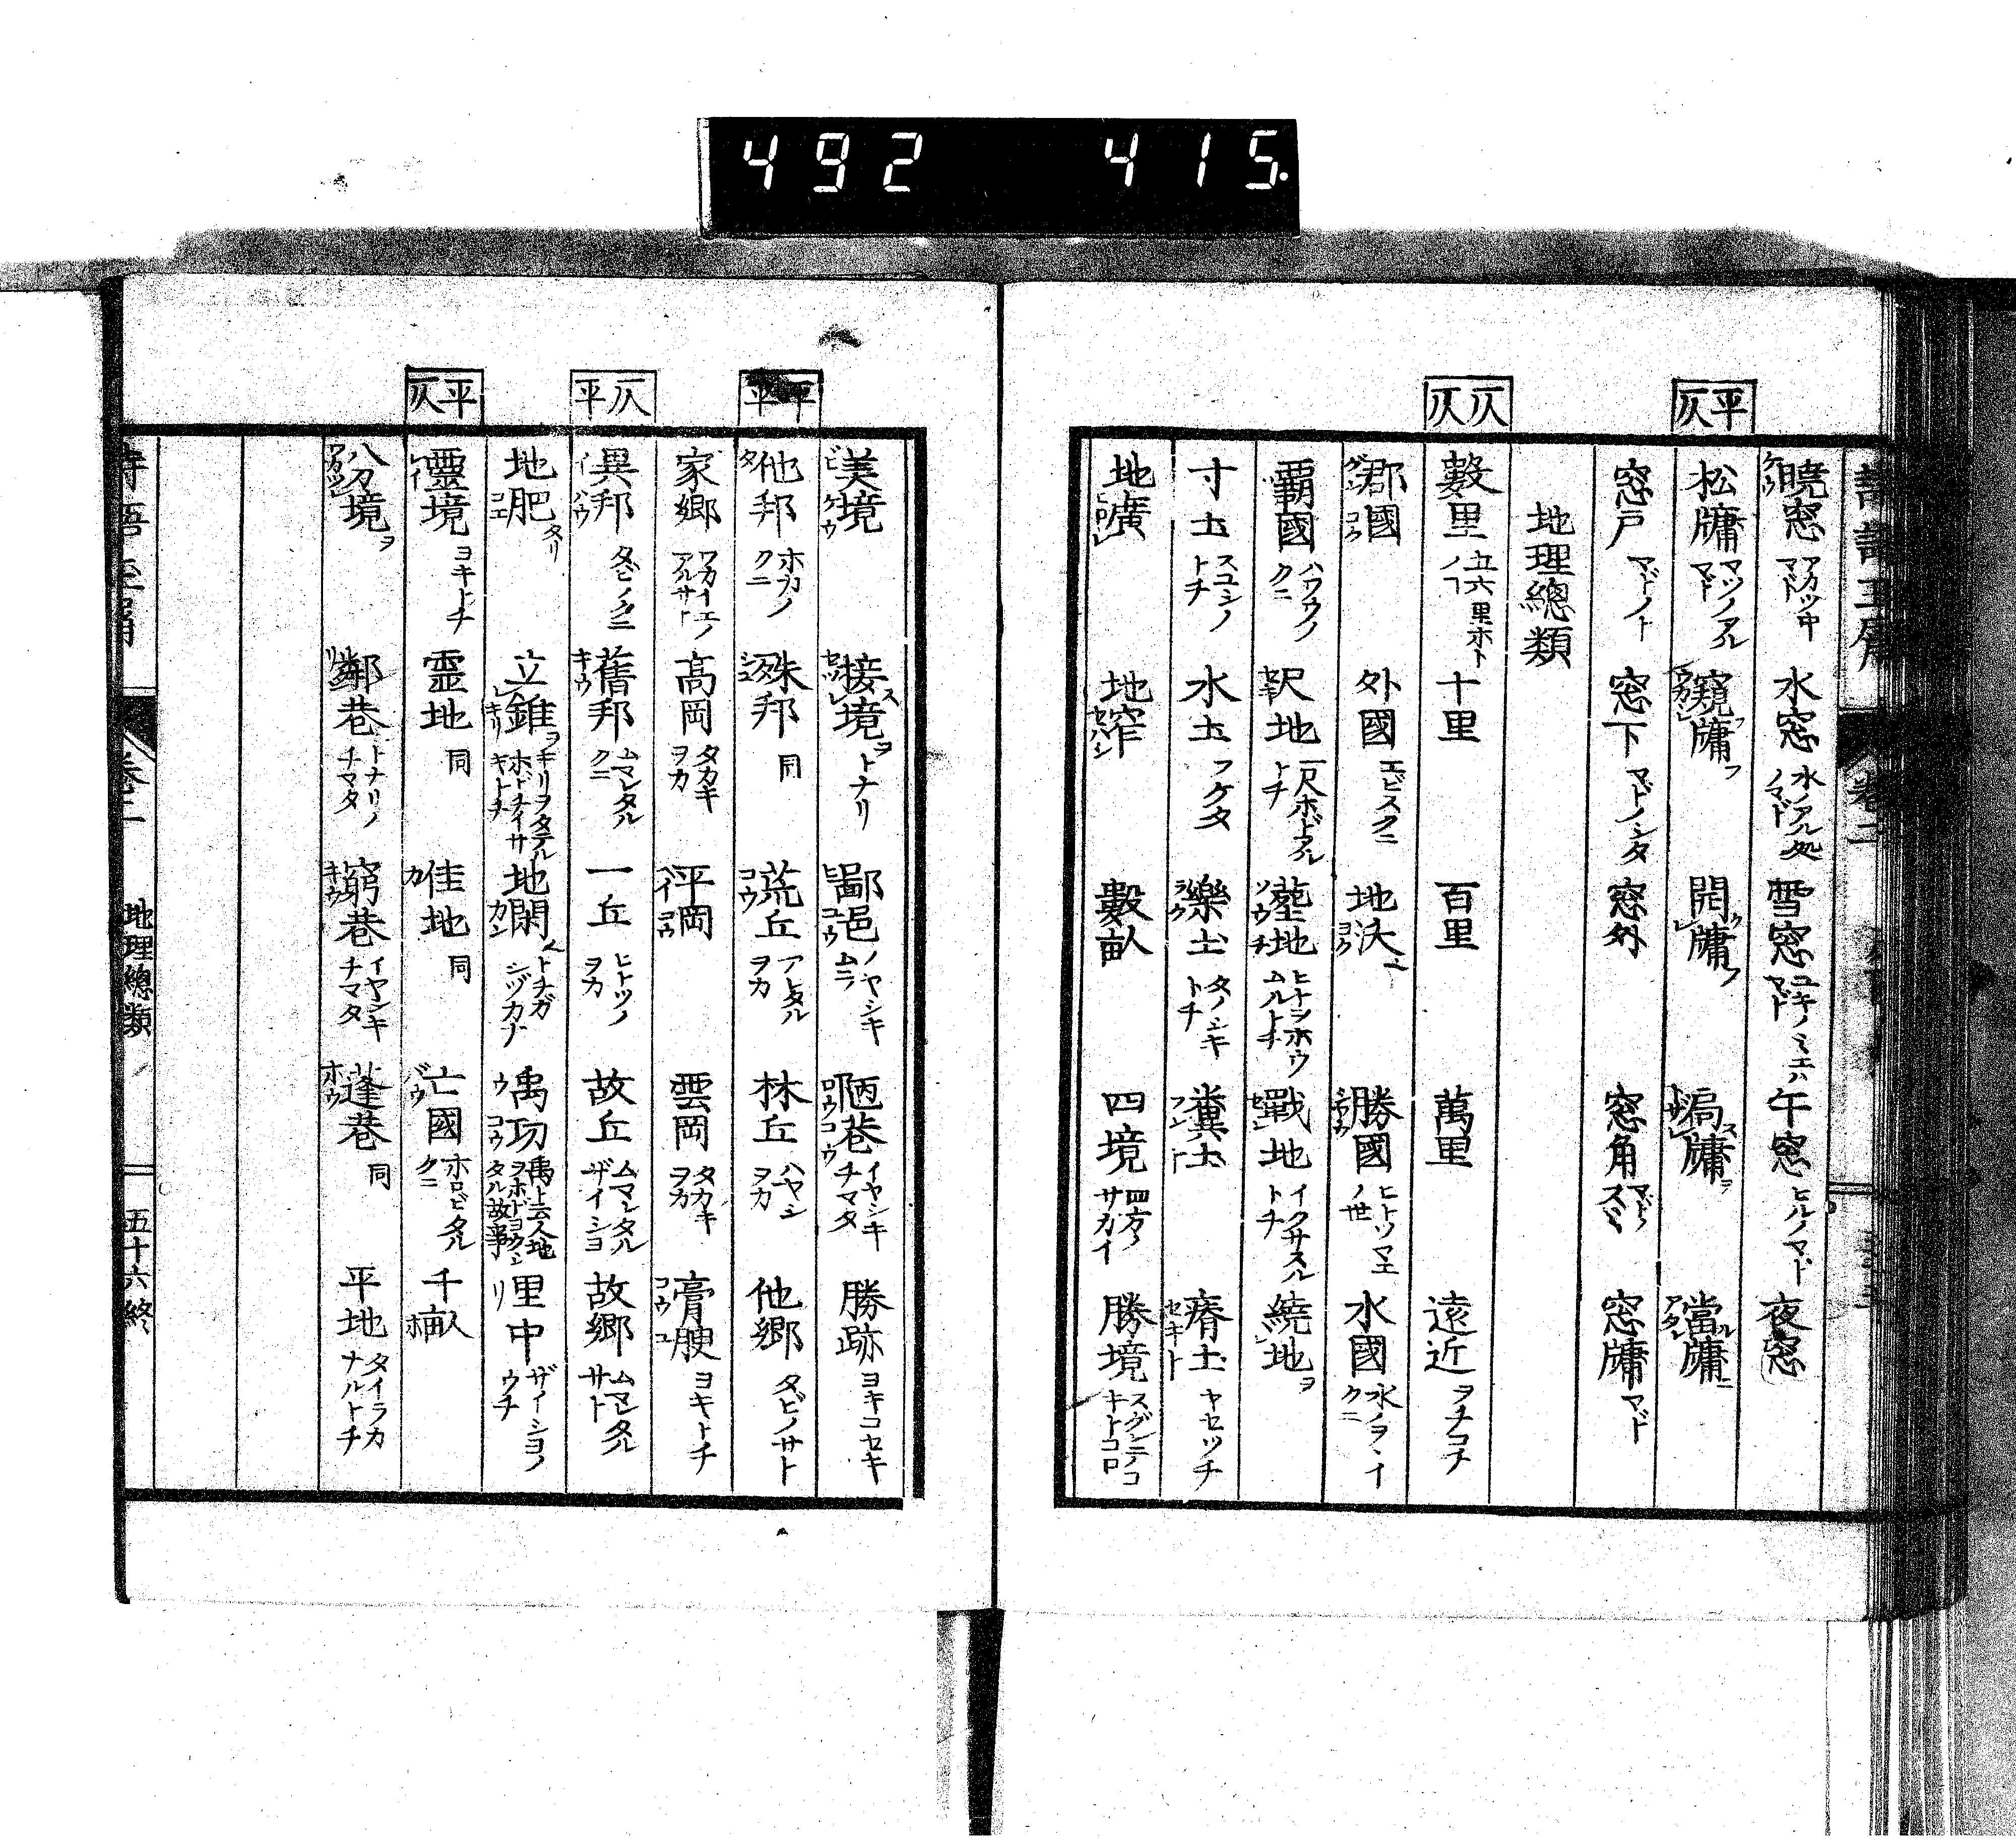 492 415.
平仄
曉窓 アカツキマド 水窓 水ノアル処ノマド 雪窓 ユキノミエルマド 午窓 ヒルノマド 夜窓
松牗 マツノアルマド 窺牗 開牗 牗 當牗
窓戸 マドノト 窓下 マドノシタ 窓外 窓角 マドノスミ 窓牗 マド
地理總類
仄仄
數里 五六里ホトノヿ 十里 百里 萬里 遠近 ヲチコチ
郡國 外國 エビスクニ 地沃 勝國 ヒトツマエノ世 水國 水ノヲヽイクニ
覇國 ハワウノクニ 尺地 一尺ホドアルトチ 塟地 ヒトヲホウムルトチ 戰地 イクサスルトチ 繞地
寸土 スコシノトチ 水土 フケタ 樂土 タノシキトチ 糞土 瘠土 ヤセツチ
地廣 地窄 數畝 四境 四方ノサカイ 勝境 スグレテヨキトコロ
美境 接境 トナリ 鄙邑 イヤシキムラ 陋巷 イヤシキチマタ 勝跡 ヨキコセキ
平平
他邦 ホカノクニ 殊邦 同 荒丘 アレタルヲカ 林丘 ハヤシヲカ 他郷 タビノサト
家郷 ワカイエノアルサト 高岡 タカキヲカ 平岡 雲岡 タカキヲカ 膏腴 ヨキトチ
仄平
異邦 タビノクニ 舊邦 ムマレタルクニ 一丘 ヒトツノヲカ 故丘 ムマレタルザイシヨ 故郷 ムマレタルサト
地肥 立錐 キリヲタテルホドチイサキトチ 地閑 トチガシヅカナ 禹功 禹ト云人地ヲホドヨクシタル故事 里中 ザイシヨノウチ
平仄
靈境 ヨキトチ 靈地 同 佳地 同 亡國 ホロビタルクニ 千畝
分境 鄰巷 トナリノチマタ 窮巷 イヤシキチマタ 蓬巷 同 平地 タイラカナルトチ
卷二 地理總類 五十六終